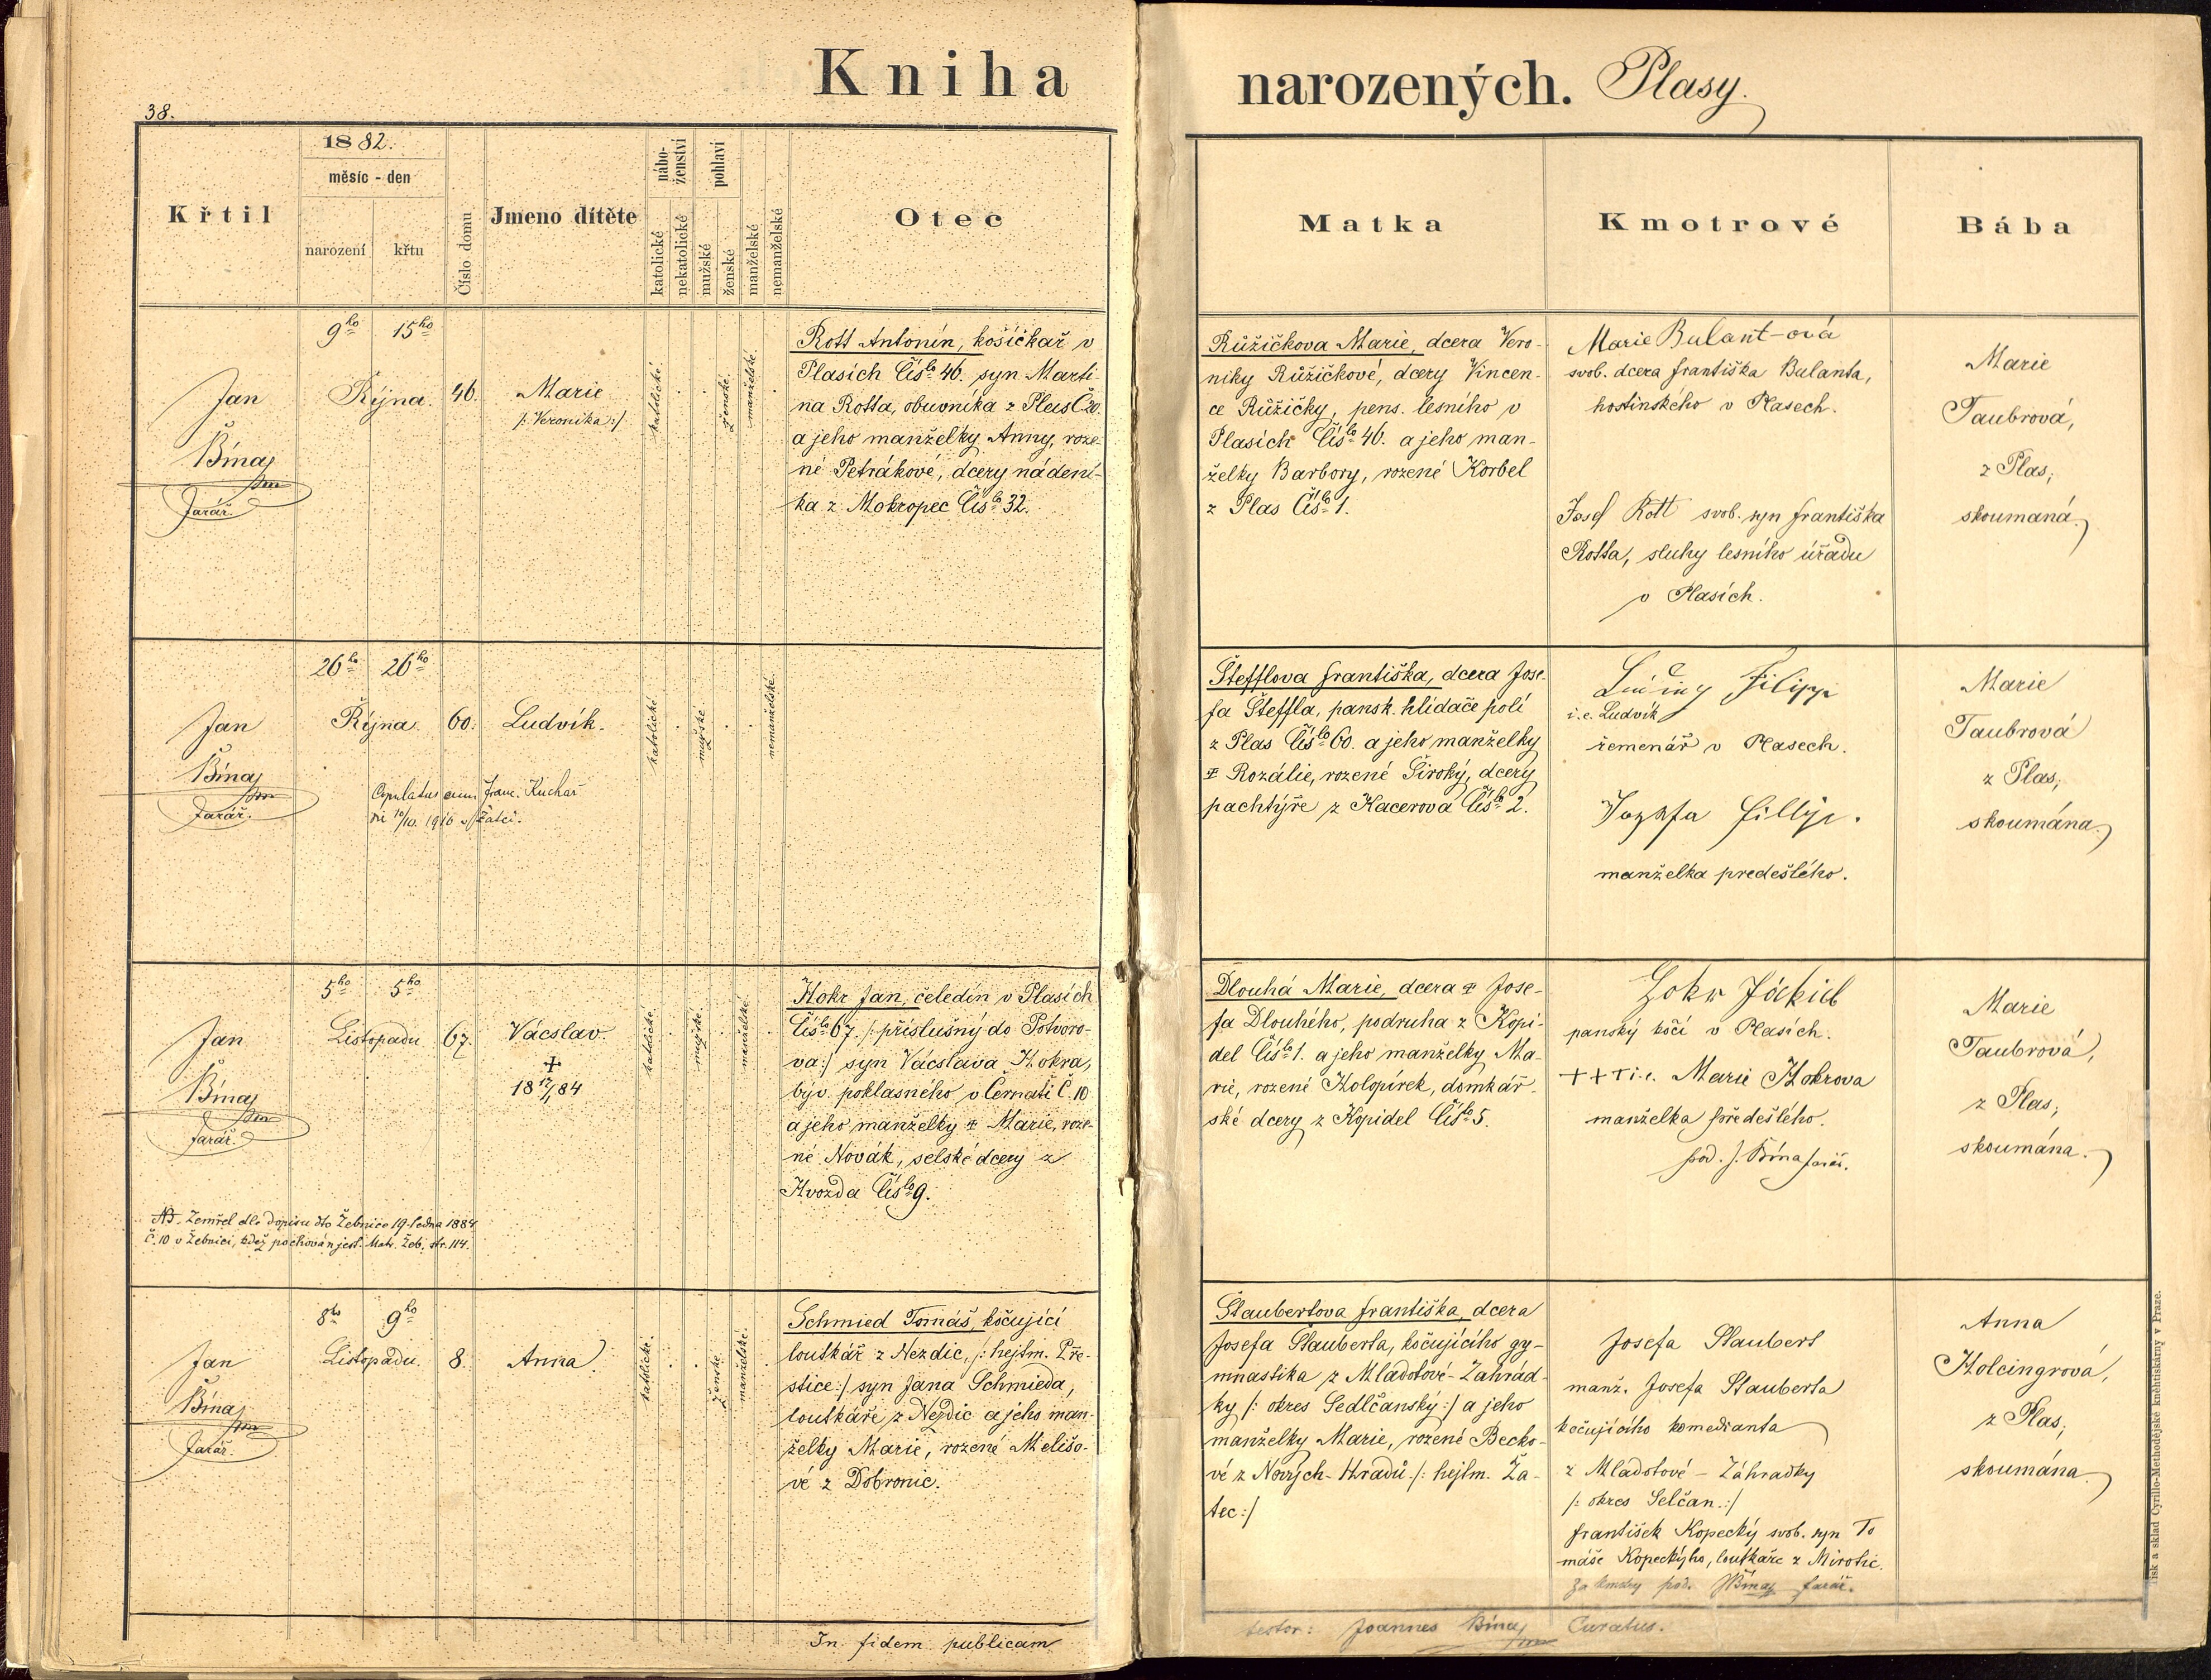 Kniha
narozených. Plasy.
38.
Křtil
1882.
měsíc - den
narození
křtu
Číslo domu
Jmeno dítěte
nábo-
ženství
katolické
nekatolické
pohlaví
mužské
ženské
manželské
nemanželské
Otec
Matka
Kmotrové
Bába
Jan
Bína
farář.
9ho 15ho
Října.
46.
Marie
/: Veronika :/
katolické.
ženské.
manželské.
Rott Antonín, košíčkař v
Plasích Čislo 46. syn Marti-
na Rotta, obuvníka z Plas Č 20.
a jeho manželky Anny, roze-
né Petrákové, dcery nádení-
ka z Mokropec Číslo 32.
Růžičkova Marie, dcera Vero-
niky Růžičkové, dcery Vincen-
ce Růžičky, pens. lesního v
Plasích Číslo 46. a jeho man-
želky Barbory, rozené Korbel
z Plas Číslo 1.
Marie Bulant-ová
svob. dcera františka Bulanta,
hostinského v Plasech.
Josef Rott svob. syn františka
Rotta, sluhy lesního úřadu
v Plasích.
Marie
Taubrová,
z Plas;
skoumaná.
Jan
Bína
farář.
26ho 26ho
Října.
60.
Ludvík.
katolické
mužské
nemanželské.
Copulatus cum Franc. Kuchař
die 10/10. 1916 v Žatci.
Štefflova františka, dcera Jose-
fa Šteffla, pansk. hlídače polí
z Plas Číslo 60. a jeho manželky
‡ Rozálie, rozené Široký, dcery
pachtýře z Kacerova Číslo 2.
Filipp
i. e. Ludvík
řemenář v Plasech.
Jozefa Fillip.
manželka predešlého.
Marie
Taubrová
z Plas;
skoumána.
Jan
Bína
farář.
5ho 5ho
Listopadu
67.
Vácslav.
+
18 17/1 84
katolické
mužské.
manželské.
NB. Zemřel dle dopisu dto Žebnice 19. ledna 1884
č. 10 v Žebnici, kdež pochován jest. Matr. Žeb. str. 114.
Hokr Jan, čeledín v Plasích
Číslo 67. /: příslušný do Potvoro-
va :/ syn Vácslava Hokra,
býv. poklasného v Černati Č. 10
a jeho manželky ‡ Marie, roze-
né Novák, selské dcery z
Hvozda Číslo 9.
Dlouhá Marie, dcera ‡ Jose-
fa Dlouhého, podruha z Kopi-
del Číslo 1. a jeho manželky Ma-
rie, rozené Holopírek, domkář-
ské dcery z Kopidel Číslo 5.
panský kočí v Plasích.
+++ i. e. Marie Hokrova
manželka předešlého.
pod. J. Bína farář.
Marie
Taubrová,
z Plas;
skoumána.
Jan
Bína
farář.
8ho 9ho
Listopadu.
8.
Anna
katolické.
ženské
manželské.
Schmied Tomáš, kočující
loutkář z Nezdic, /: hejtm. Pře-
stice :/ syn Jana Schmieda,
loutkáře z Nezdic a jeho man-
želky Marie, rozené Melišo-
vé z Dobronic.
Štaubertova františka, dcera
Josefa Štauberta, kočujícího gy-
mnastika z Mladotové-Zahrád-
ky /: okres Sedlčanský :/ a jeho
manželky Marie, rozené Becko-
vé z Nových-Hradů /: hejtm. Ža-
tec :/
Josefa Staubert
manž. Josefa Stauberta
kočujícího komedianta
z Mladotové - Záhradky
/: okres Selčan. :/
františek Kopecký svob. syn To
máše Kopeckýho, loutkáře z Mirotic.
za kmotry pod. JBína farář.
Anna
Holcingrová,
z Plas;
skoumána.
In fidem publicam
testor: Joannes Bína Curatus.
Tisk a sklad Cyrillo-Methodějské knihtiskárny v Praze.